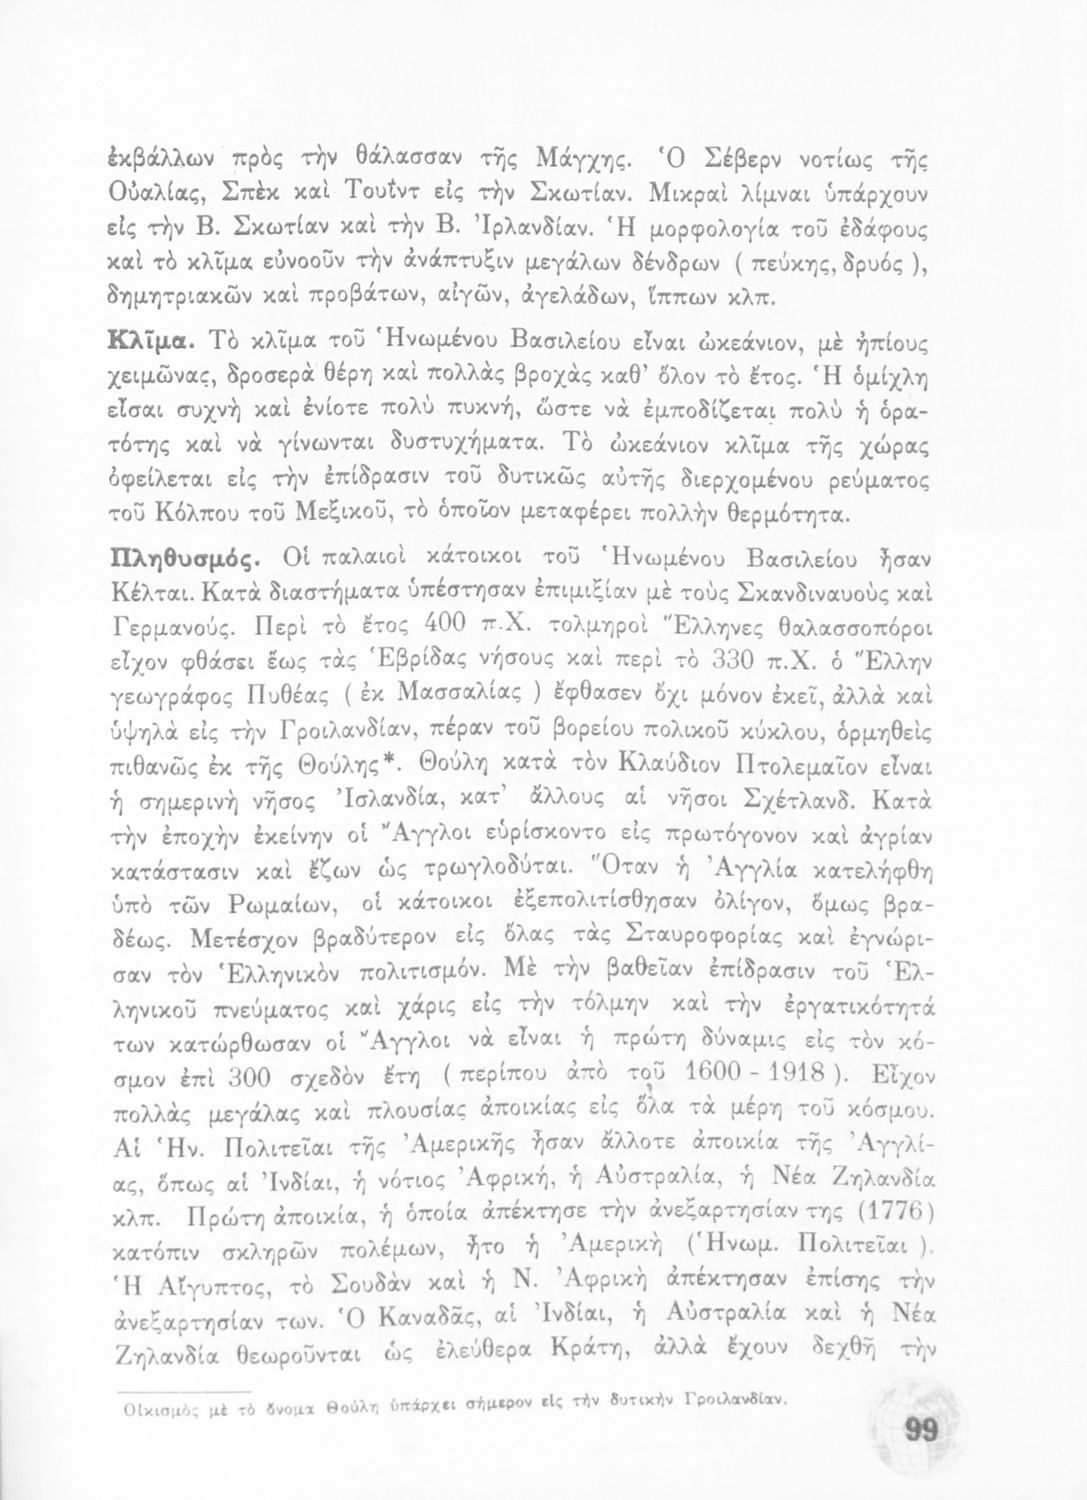 ἐκβάλλων πρὸς τὴν θάλασσαν τῆς Μάγχης. Ὁ Σέβερν νοτίως τῆς
Οὐαλίας, Σπὲκ καὶ Τουΐντ εἰς τὴν Σκωτίαν. Μικραὶ λίμναι ὑπάρχουν
εἰς τὴν Β. Σκωτίαν καὶ τὴν Β. Ἰρλανδίαν. Ἡ μορφολογία τοῦ ἐδάφους
καὶ τὸ κλῖμα εὐνοοῦν τὴν ἀνάπτυξιν μεγάλων δένδρων ( πεύκης, δρυός ),
δημητριακῶν καὶ προβάτων, αἰγῶν, ἀγελάδων, ἵππων κλπ.
Κλῖμα. Τὸ κλῖμα τοῦ Ἡνωμένου Βασιλείου εἶναι ὠκεάνιον, μὲ ἠπίους
χειμῶνας, δροσερὰ θέρη καὶ πολλὰς βροχὰς καθ’ ὅλον τὸ ἔτος. Ἡ ὁμίχλη
εἶσαι συχνὴ καὶ ἐνίοτε πολὺ πυκνή, ὥστε νὰ ἐμποδίζεται πολὺ ἡ ὁρα-
τότης καὶ νὰ γίνωνται δυστυχήματα. Τὸ ὠκεάνιον κλῖμα τῆς χώρας
ὀφείλεται εἰς τὴν ἐπίδρασιν τοῦ δυτικῶς αὐτῆς διερχομένου ρεύματος
τοῦ Κόλπου τοῦ Μεξικοῦ, τὸ ὁποῖον μεταφέρει πολλὴν θερμότητα.
Πληθυσμός. Οἱ παλαιοὶ κάτοικοι τοῦ Ἡνωμένου Βασιλείου ἦσαν
Κέλται. Κατὰ διαστήματα ὑπέστησαν ἐπιμιξίαν μὲ τοὺς Σκανδιναυοὺς καὶ
Γερμανούς. Περὶ τὸ ἔτος 400 π.Χ. τολμηροὶ Ἕλληνες θαλασσοπόροι
εἶχον φθάσει ἕως τὰς Ἑβρίδας νήσους καὶ περὶ τὸ 330 π.Χ. ὁ Ἕλλην
γεωγράφος Πυθέας ( ἐκ Μασσαλίας ) ἔφθασεν ὄχι μόνον ἐκεῖ, ἀλλὰ καὶ
ὑψηλὰ εἰς τὴν Γροιλανδίαν, πέραν τοῦ βορείου πολικοῦ κύκλου, ὁρμηθεὶς
πιθανῶς ἐκ τῆς Θούλης*. Θούλη κατὰ τὸν Κλαύδιον Πτολεμαῖον εἶναι
ἡ σημερινὴ νῆσος Ἰσλανδία, κατ’ ἄλλους αἱ νῆσοι Σχέτλανδ. Κατὰ
τὴν ἐποχὴν ἐκείνην οἱ Ἄγγλοι εὑρίσκοντο εἰς πρωτόγονον καὶ ἀγρίαν
κατάστασιν καὶ ἔζων ὡς τρωγλοδύται. Ὅταν ἡ Ἀγγλία κατελήφθη
ὑπὸ τῶν Ρωμαίων, οἱ κάτοικοι ἐξεπολιτίσθησαν ὀλίγον, ὅμως βρα-
δέως. Μετέσχον βραδύτερον εἰς ὅλας τὰς Σταυροφορίας καὶ ἐγνώρι-
σαν τὸν Ἑλληνικὸν πολιτισμόν. Μὲ τὴν βαθεῖαν ἐπίδρασιν τοῦ Ἑλ-
ληνικοῦ πνεύματος καὶ χάρις εἰς τὴν τόλμην καὶ τὴν ἐργατικότητά
των κατώρθωσαν οἱ Ἄγγλοι νὰ εἶναι ἡ πρώτη δύναμις εἰς τὸν κό-
σμον ἐπὶ 300 σχεδὸν ἔτη ( περίπου ἀπὸ τοῦ 1600 - 1918 ). Εἶχον
πολλὰς μεγάλας καὶ πλουσίας ἀποικίας εἰς ὅλα τὰ μέρη τοῦ κόσμου.
Αἱ Ἡν. Πολιτεῖαι τῆς Ἀμερικῆς ἦσαν ἄλλοτε ἀποικία τῆς Ἀγγλί-
ας, ὅπως αἱ Ἰνδίαι, ἡ νότιος Ἀφρική, ἡ Αὐστραλία, ἡ Νέα Ζηλανδία
κλπ. Πρώτη ἀποικία, ἡ ὁποία ἀπέκτησε τὴν ἀνεξαρτησίαν της (1776)
κατόπιν σκληρῶν πολέμων, ἦτο ἡ Ἀμερικὴ (Ἡνωμ. Πολιτεῖαι ).
Ἡ Αἴγυπτος, τὸ Σουδὰν καὶ ἡ Ν. Ἀφρικὴ ἀπέκτησαν ἐπίσης τὴν
ἀνεξαρτησίαν των. Ὁ Καναδᾶς, αἱ Ἰνδίαι, ἡ Αὐστραλία καὶ ἡ Νέα
Ζηλανδία θεωροῦνται ὡς ἐλεύθερα Κράτη, ἀλλὰ ἔχουν δεχθῆ τὴν
Οἰκισμὸς μὲ τὸ ὄνομα Θούλη ὑπάρχει σήμερον εἰς τὴν δυτικὴν Γροιλανδίαν.
99